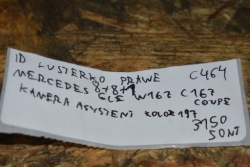 ID LUSTERKO PRAWE C464
8+8+1
MERCEDES GLE W167 C167
COUPE
KAMERA ASYSTENT KOLOR 197
3150
50NT